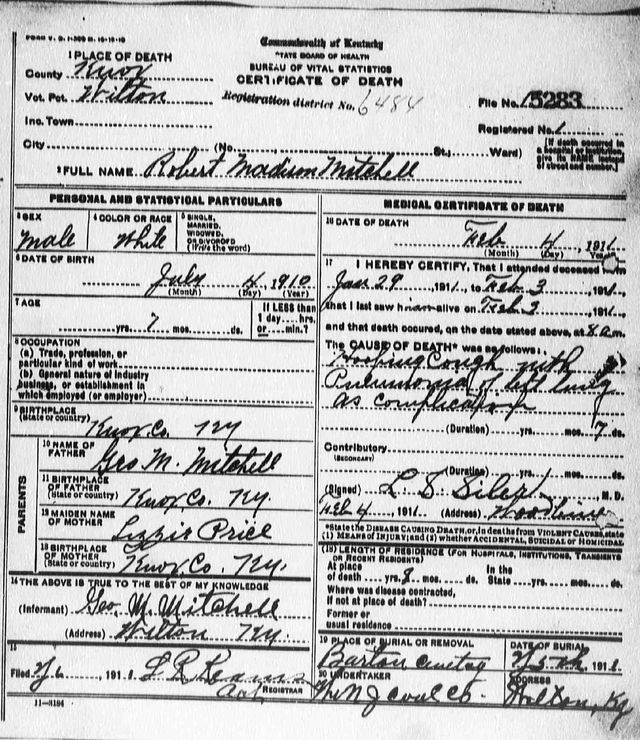 FORM V. S. 1-
Commonwealth of Kentucky
STATE BOARD OF HEALTH
BUREAU OF VITAL STATISTICS
CERTIFICATE OF DEATH
1 PLACE OF DEATH
County Knox
Vot. Pct. Wilton
Registration district No. 6484
File No. 15283
Inc. Town
Registered No. 1
City (No. St.; Ward)
(If death occurred in a hospital or institution, give its NAME instead of street and number.)
2 FULL NAME Robert Madison Mitchell
PERSONAL AND STATISTICAL PARTICULARS
3 SEX
Male
4 COLOR OR RACE
White
5 SINGLE, MARRIED, WIDOWED, OR DIVORCED (Write the word)
6 DATE OF BIRTH
July 4 1910
(Month) (Day) (Year)
7 AGE
yrs. 7 mos. ds.
If LESS than 1 day....hrs. or....min.?
8 OCCUPATION
(a) Trade, profession, or particular kind of work
(b) General nature of industry business, or establishment in which employed (or employer)
9 BIRTHPLACE
(State or country) Knox Co. Ky
PARENTS
10 NAME OF FATHER Geo M. Mitchell
11 BIRTHPLACE OF FATHER (State or country) Knox Co. Ky.
12 MAIDEN NAME OF MOTHER Lizzie Price
13 BIRTHPLACE OF MOTHER (State or country) Knox Co. Ky.
14 THE ABOVE IS TRUE TO THE BEST OF MY KNOWLEDGE
(Informant) Geo. M. Mitchell
(Address) Wilton Ky.
15
Filed 2/6 1911
REGISTRAR
11-3184
MEDICAL CERTIFICATE OF DEATH
16 DATE OF DEATH
Feb 4, 1911
(Month) (Day) (Year)
17 I HEREBY CERTIFY, That I attended deceased from
Jan 29, 1911, to Feb 3, 1911,
that I last saw him alive on Feb 3, 1911,
and that death occured, on the date stated above, at 8 a.m.
The CAUSE OF DEATH* was as follows:
Hooping Cough with
Pneumonia of left lung
as complication
(Duration) yrs. mos. 7 ds.
Contributory
(SECONDARY)
(Duration) yrs. mos. ds.
(Signed) L. S. Siler M. D.
Feb 4, 1911 (Address) Woodbine
*State the DISEASE CAUSING DEATH, or, in deaths from VIOLENT CAUSES, state
(1) MEANS OF INJURY; and (2) whether ACCIDENTAL, SUICIDAL OR HOMICIDAL
(18) LENGTH OF RESIDENCE (FOR HOSPITALS, INSTITUTIONS, TRANSIENTS OR RECENT RESIDENTS)
At place of death yrs. 8 mos. ds. In the State yrs. mos. ds.
Where was disease contracted,
If not at place of death?
Former or
usual residence
19 PLACE OF BURIAL OR REMOVAL
Barton
DATE OF BURIAL
2/5th, 1911
20 UNDERTAKER
The N J Coal Co.
ADDRESS
Wilton, Ky